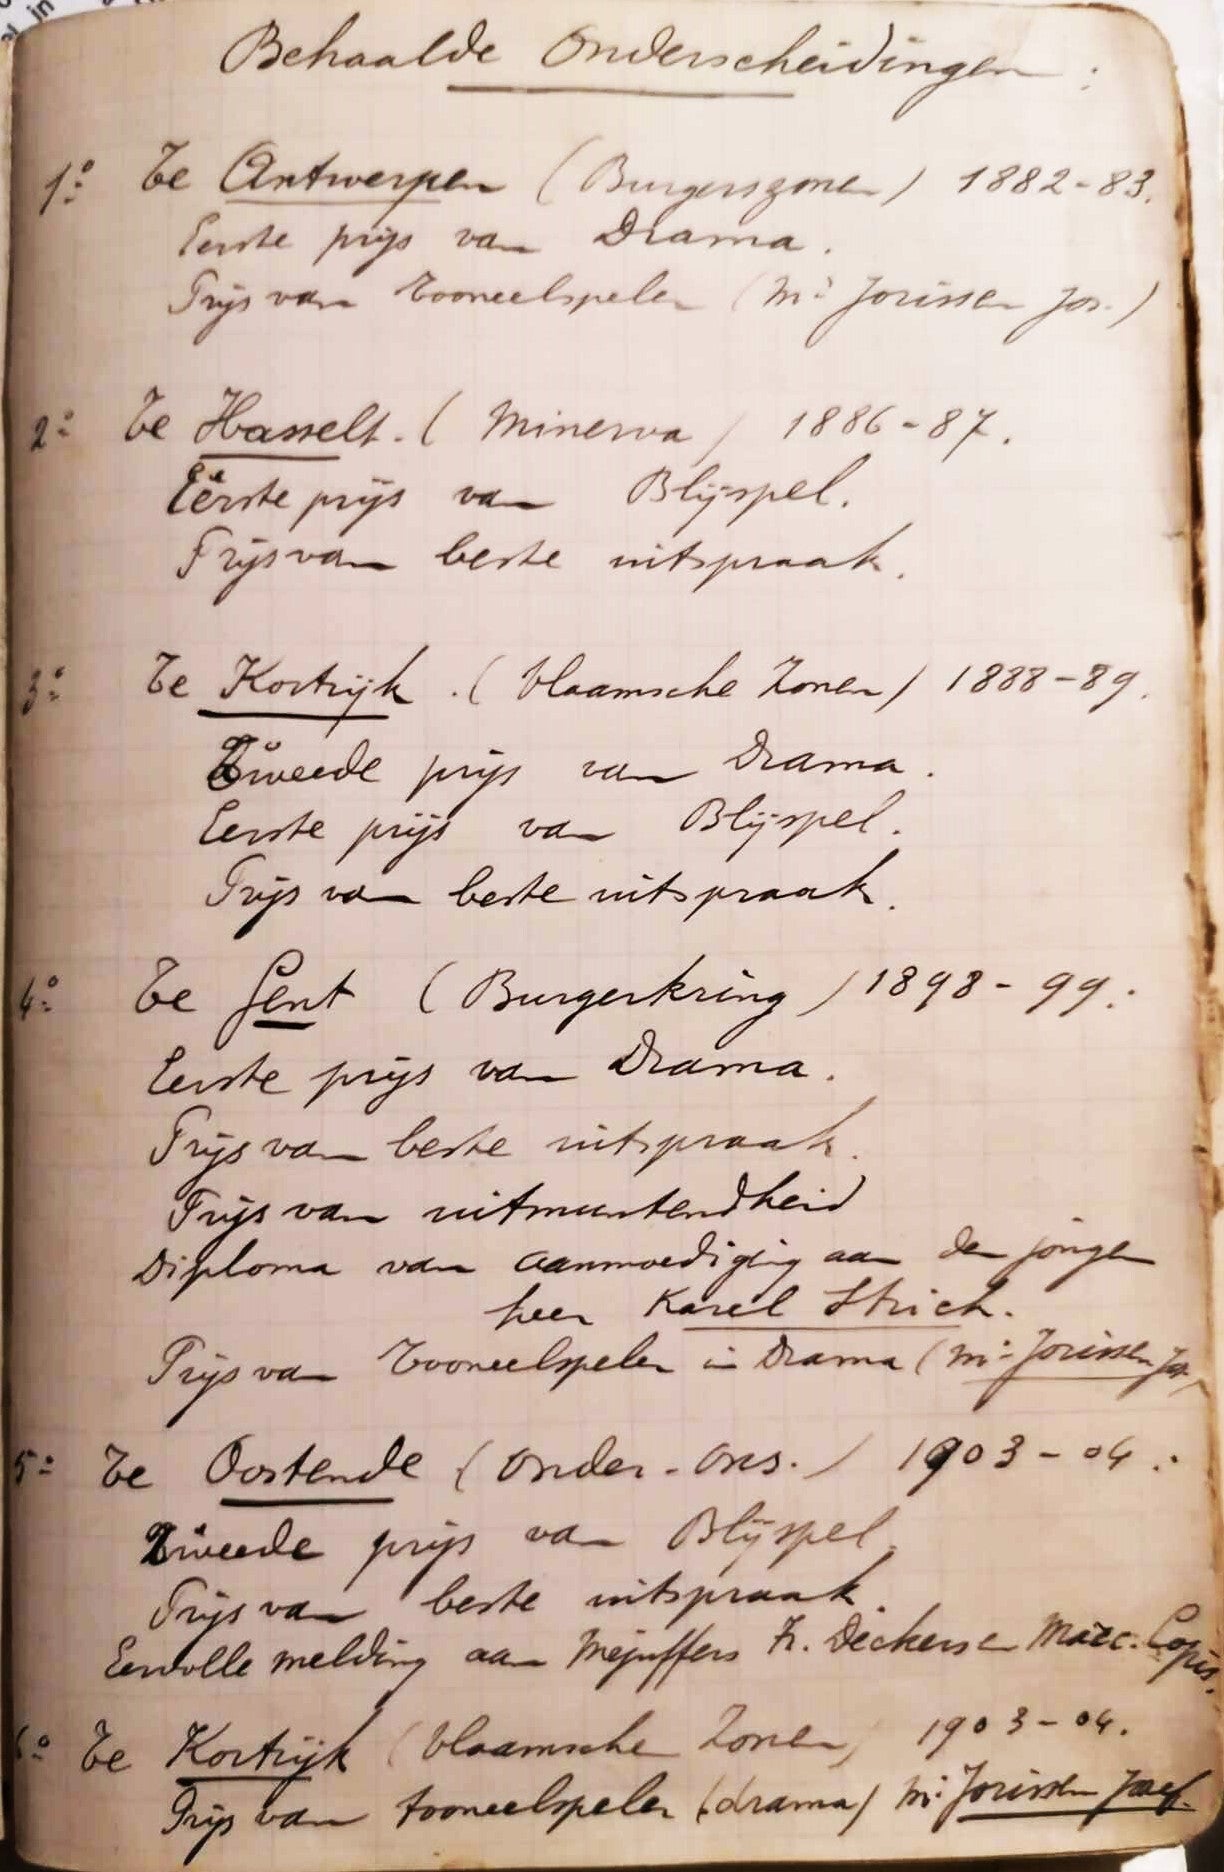 Behaalde Onderscheidingen :
1º Te Antwerpen (Burgerszonen) 1882-83.
Eerste prijs van Drama.
Prijs van Tooneelspeler (Mr Jorissen Jos.)
2º Te Hasselt. (Minerva) 1886-87.
Eerste prijs van Blijspel.
Prijs van beste uitspraak.
3º Te Kortrijk. (Vlaamsche Zonen) 1888-89.
Tweede prijs van Drama.
Eerste prijs van Blijspel.
Prijs van beste uitspraak.
4º Te Gent (Burgerkring) 1898-99.
Eerste prijs van Drama.
Prijs van beste uitspraak.
Prijs van uitmuntendheid
Diploma van aanmoediging aan den jongen
heer Karel
Prijs van Tooneelspeler in Drama (Mr Jorissen Jos.)
5º Te Oostende (Onder-Ons.) 1903-04.
Tweede prijs van Blijspel.
Prijs van beste uitspraak.
Eervolle melding aan Mejuffers Dickers en
6º Te Kortrijk (Vlaamsche Zonen) 1903-04.
Prijs van tooneelspeler (drama) Mr Jorissen Jozef.